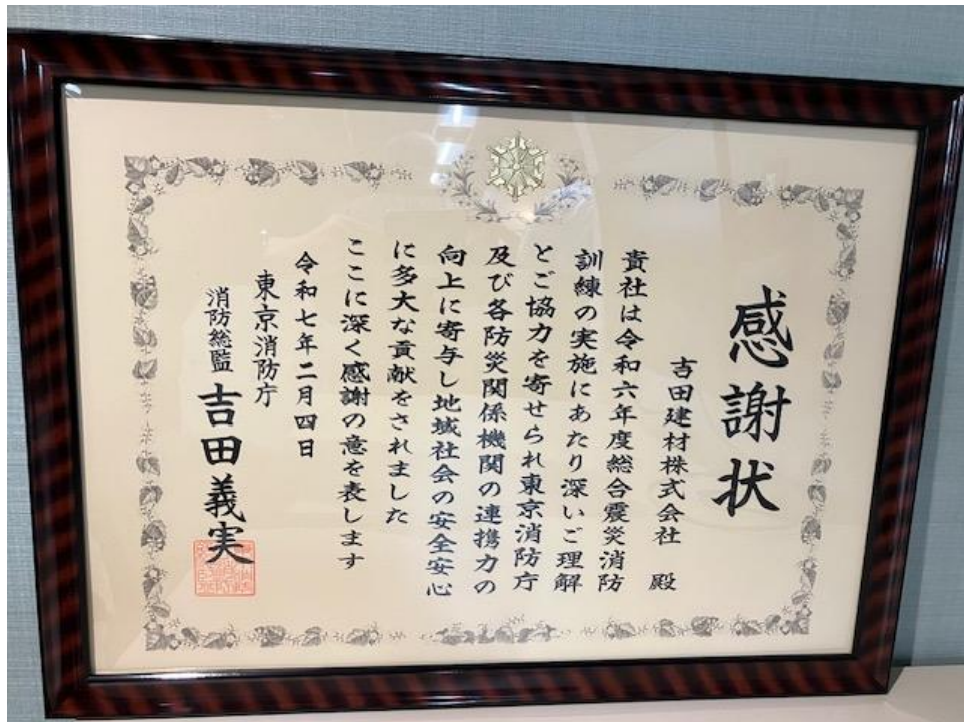 感謝状
吉田建材株式会社 殿
貴社は令和六年度総合震災消防
訓練の実施にあたり深いご理解
とご協力を寄せられ東京消防庁
及び各防災関係機関の連携力の
向上に寄与し地域社会の安全安心
に多大な貢献をされました
ここに深く感謝の意を表します
令和七年二月四日
東京消防庁
消防総監 吉田義実